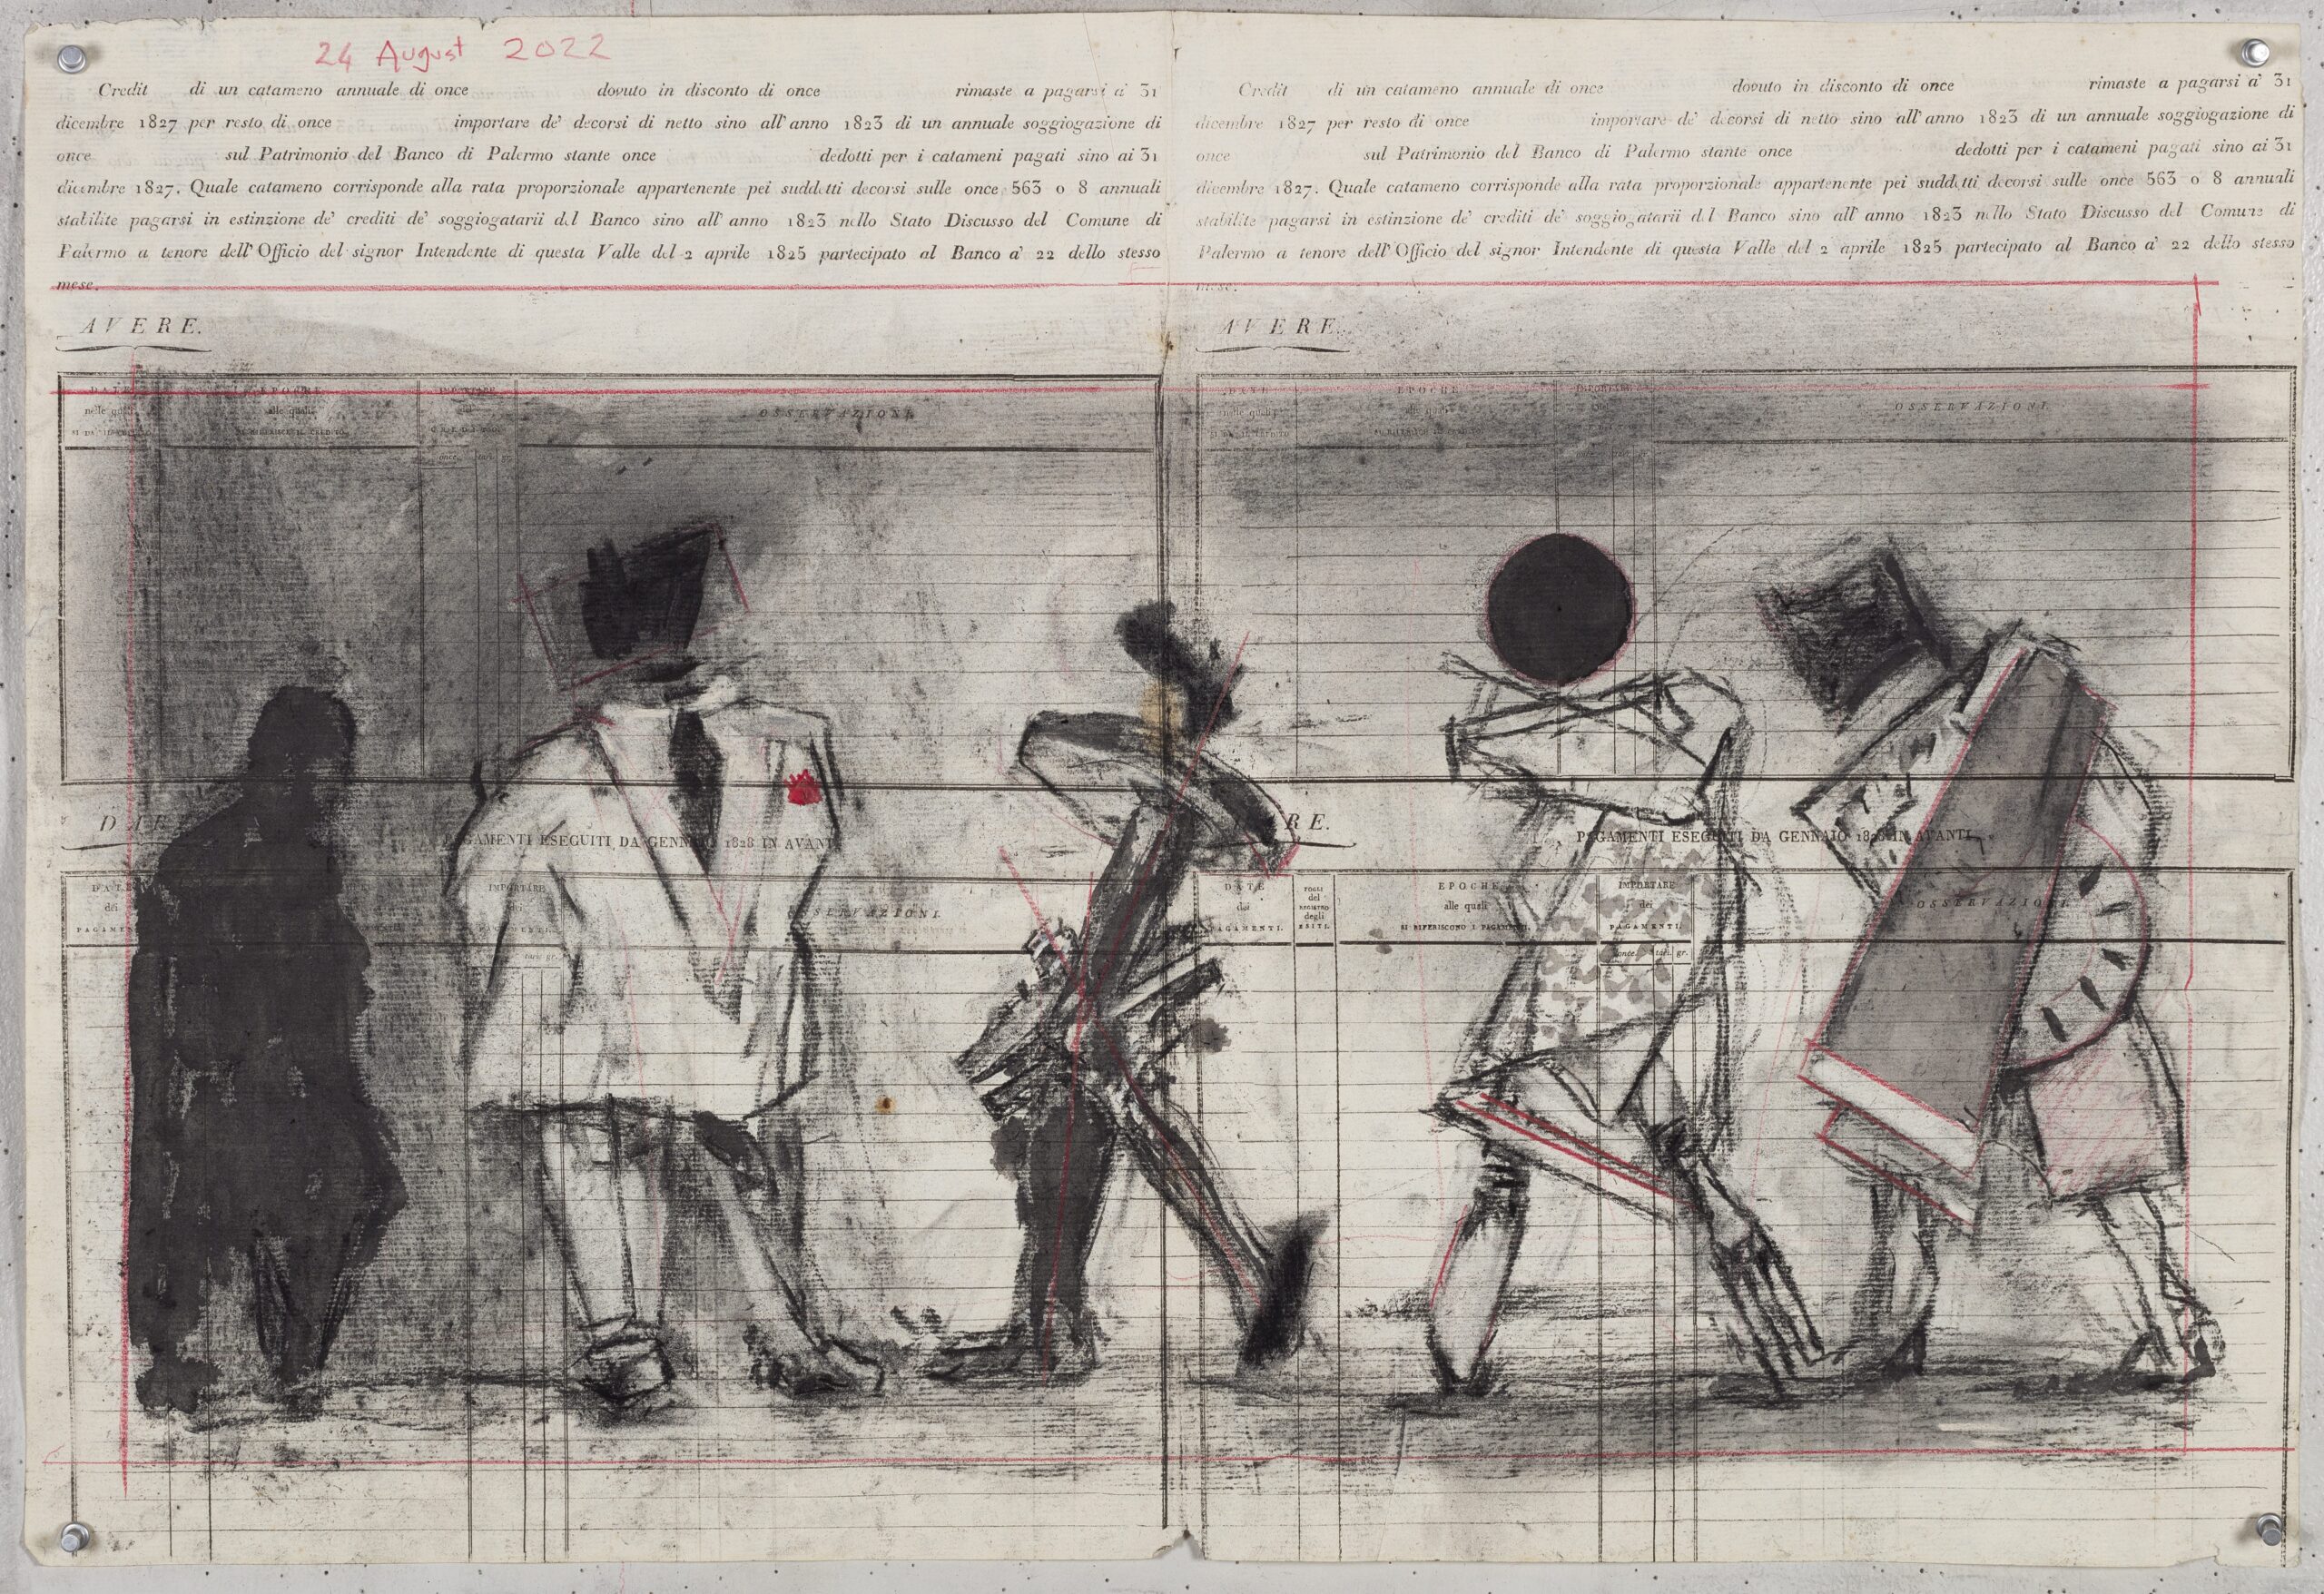 24 August 2022
Credit di un catameno annuale di once dovuto in disconto di once rimaste a pagarsi a' 31
dicembre 1827 per resto di once importare de' decorsi di netto sino all'anno 1823 di un annuale soggiogazione di
once sul Patrimonio del Banco di Palermo stante once dedotti per i catameni pagati sino ai 31
dicembre 1827. Quale catameno corrisponde alla rata proporzionale appartenente pei suddetti decorsi sulle once 563 o 8 annuali
stabilite pagarsi in estinzione de' crediti de' soggiogatarii del Banco sino all' anno 1823 nello Stato Discusso del Comune di
Palermo a tenore dell' Officio del signor Intendente di questa Valle del 2 aprile 1825 partecipato al Banco a' 22 dello stesso
mese.
AVERE.
DATE EPOCHE IMPORTARE
nelle quali alle quali OSSERVAZIONI.
once. tari. gr.
PAGAMENTI ESEGUITI DA GENNAIO 1828 IN AVANTI
DATE IMPORTARE
dei dei OSSERVAZIONI.
tari. gr.
Credit di un catameno annuale di once dovuto in disconto di once rimaste a pagarsi a' 31
dicembre 1827 per resto di once importare de' decorsi di netto sino all'anno 1823 di un annuale soggiogazione di
once sul Patrimonio del Banco di Palermo stante once dedotti per i catameni pagati sino ai 31
dicembre 1827. Quale catameno corrisponde alla rata proporzionale appartenente pei suddetti decorsi sulle once 563 o 8 annuali
stabilite pagarsi in estinzione de' crediti de' soggiogatarii del Banco sino all' anno 1823 nello Stato Discusso del Comune di
Palermo a tenore dell' Officio del signor Intendente di questa Valle del 2 aprile 1825 partecipato al Banco a' 22 dello stesso
mese.
AVERE.
DATE EPOCHE IMPORTARE
nelle quali alle quali OSSERVAZIONI.
PAGAMENTI ESEGUITI DA GENNAIO 1828 IN AVANTI
DATE FOGLI EPOCHE IMPORTARE
dei del REGISTRO degli ESITI. alle quali dei OSSERVAZIONI.
PAGAMENTI. SI RIFERISCONO I PAGAMENTI. PAGAMENTI.
once. tari. gr.